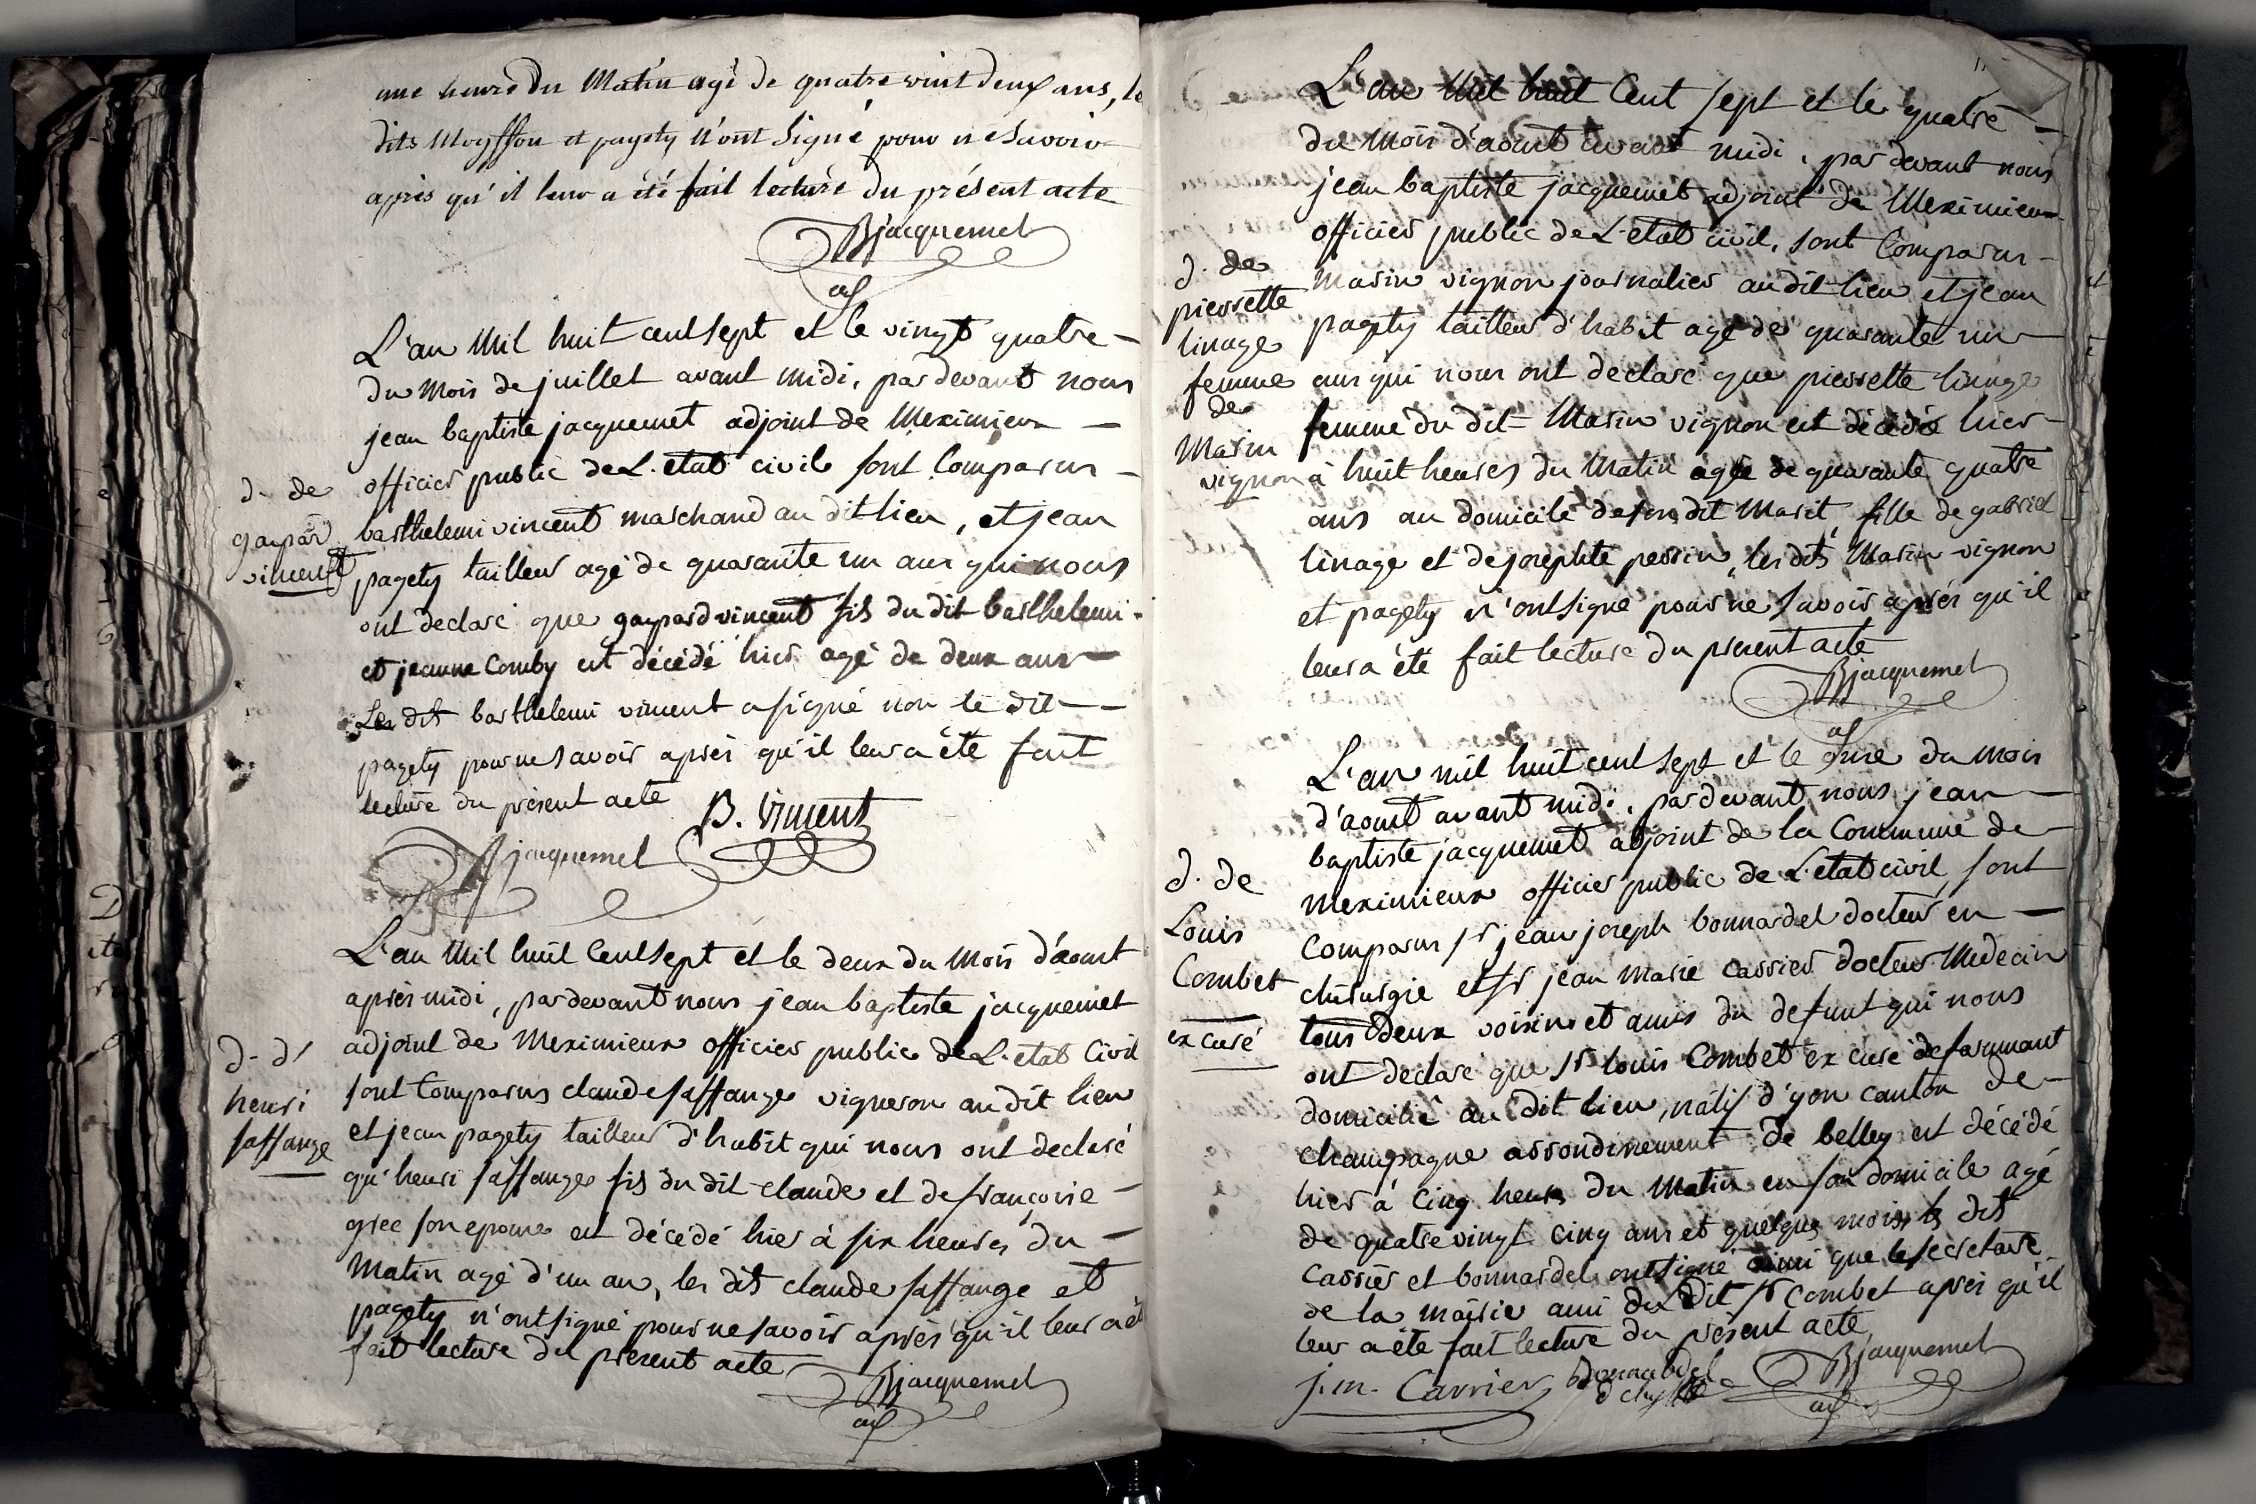 une heure du Matin agé de quatre vint deux ans, le
dits Moysson et pagety n'ont Signé pour ne Savoir
après qu'il leur a été fait lecture du présent acte
BJacquemet
adj
L'an Mil huit cent sept et le vingt quatre
du Mois de juillet avant midi, par devant nous
jean baptiste jacquemet adjoint de Meximieux
officier public de L'etat civil sont Comparus
d. de
gaspar
vincent
barthelemi vincent marchand au dit lieu, et jean
pagety tailleur agé de quarante un ans qui nous
ont declaré que gaspard vincent fils du dit barthelemi
et jeanne Comby est décédé hier agé de deux ans
Les dit barthelemi vincent a signé non le dit
pagety pour ne savoir après qu'il leur a été fait
lecture du présent acte
B. Vincent
BJacquemet
L'an Mil huit Cent sept et le deux du Mois d'aout
après midi, par devant nous jean baptiste jacquemet
adjoint de Meximieux officier public de L'etat Civil
d. d'
henri
saffange
sont Comparus claude saffange vigneron au dit lieu
et jean pagety tailleur d'habit qui nous ont declaré
qu'henri saffange fils du dit claude et de françoise
gree son epouse est décédé hier à six heures du
Matin agé d'un an, les dit claude saffange et
pagety n'ont signé pour ne savoir après qu'il leur a été
fait lecture du present acte
BJacquemet
adj
L'an Mil huit Cent sept et le quatre
du Mois d'aout avant midi, par devant nous
jean baptiste jacquemet adjoint de Meximieux
officier public de L'etat civil, sont Comparus
d. de
pierrette
linage
femme
de
Marin
vignon
Marin vignon journalier au dit lieu et jean
pagety tailleur d'habit agé de quarante un
ans qui nous ont declaré que pierrette linage
femme du dit Marin vignon est décédé hier
à huit heures du Matin agée de quarante quatre
ans au domicile de son dit Marit, fille de gabriel
linage et de josephte perrin, les dits Marin vignon
et pagety n'ont signé pour ne savoir après qu'il
leur a été fait lecture du present acte
BJacquemet
adj
L'an mil huit cent sept et le onze du mois
d'aout avant midi, par devant nous jean
baptiste jacquemet adjoint de la Commune de
Meximieux officier public de L'etat civil, sont
d. de
Louis
Combet
ex curé
Comparus sr jean joseph bonnardel docteur en
chirurgie et sr jean marie carrier docteur Medecin
tous deux voisins et amis du defunt qui nous
ont declaré que sr louis Combet ex curé de faramant
domicilié au dit lieu, natif d'yon canton de
champagne arrondissement de belley est décédé
hier à Cinq heures du Matin en son domicile agé
de quatre vingt cinq ans et quelques mois, les dits
carrier et bonnardel ont signé ainsi que le secretaire
de la mairie ami du dit sr Combet après qu'il
leur a été fait lecture du présent acte
j. m. Carrier
bonnardel
BJacquemet
adj